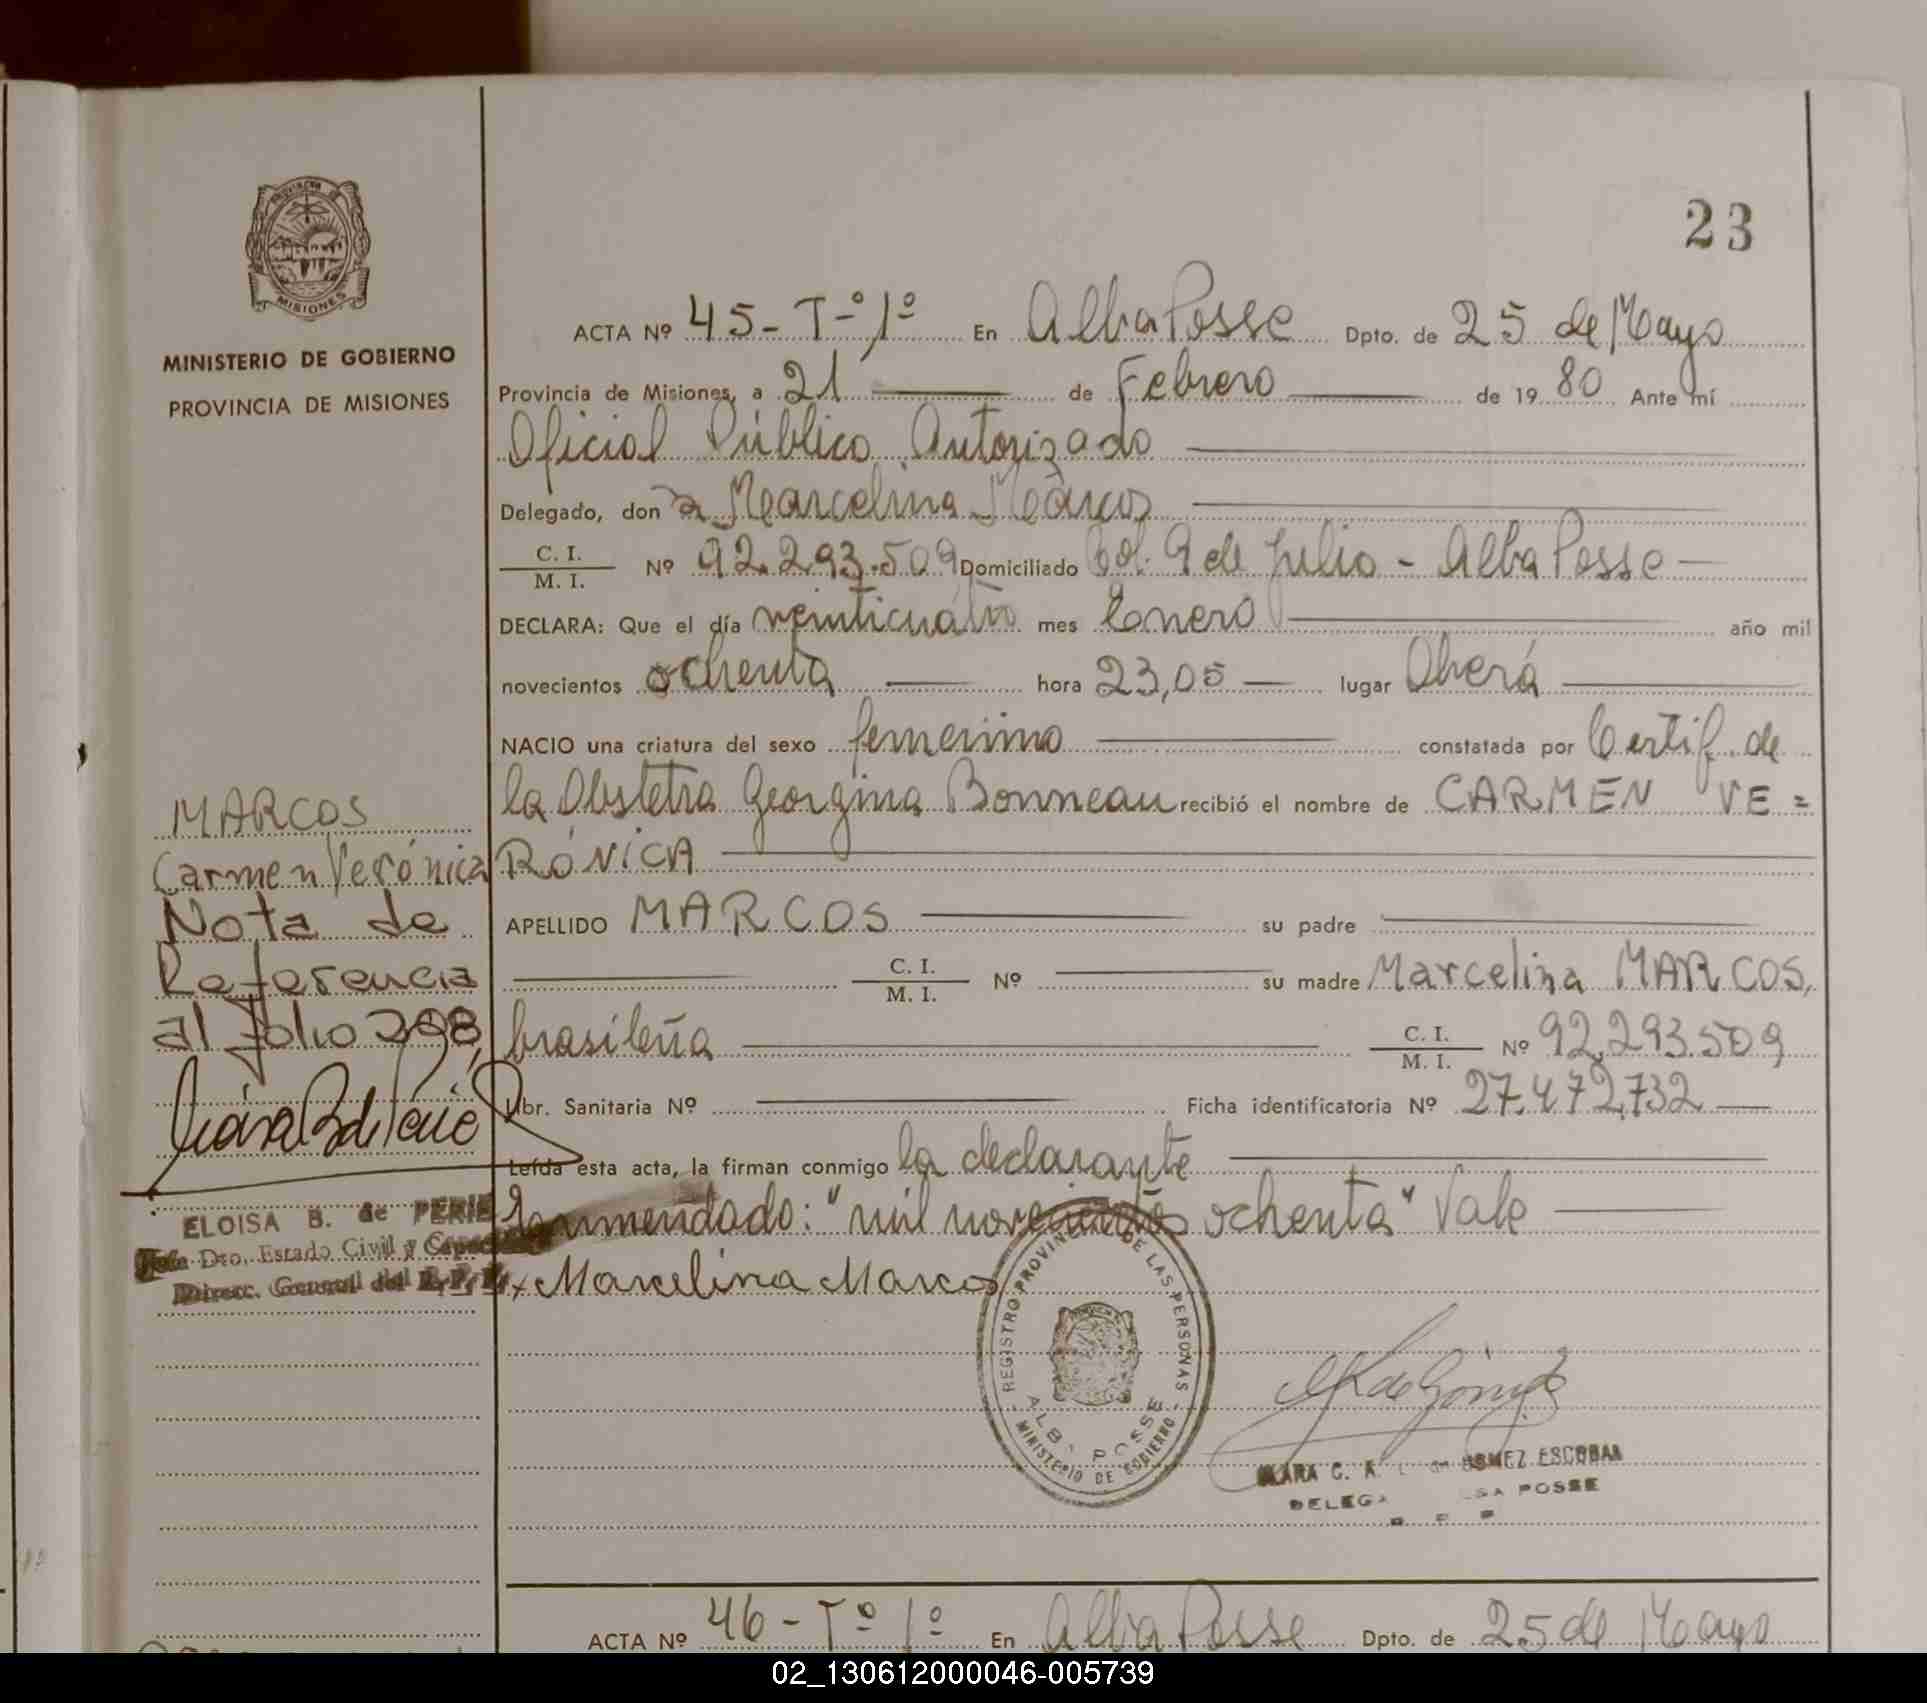 23
PROVINCIA DE
MISIONES
MINISTERIO DE GOBIERNO
PROVINCIA DE MISIONES
ACTA Nº 45 - Tº 1º En Alba Posse Dpto. de 25 de Mayo
Provincia de Misiones, a 21 de Febrero de 1980 Ante mí
Oficial Público Autorizado
Delegado, don a Marcelina Marcos
C. I.
M. I. Nº 92.293.509 Domiciliado Col. 9 de Julio - Alba Posse
DECLARA: Que el día veinticuatro mes Enero año mil
novecientos ochenta hora 23,05 lugar Oberá
NACIO una criatura del sexo femenino constatada por Certif. de
la Obstetra Georgina Bonneau recibió el nombre de CARMEN VE=
RÓNICA
APELLIDO MARCOS su padre
C. I.
M. I. Nº su madre Marcelina MARCOS,
brasileña C. I.
M. I. Nº 92.293.509
Libr. Sanitaria Nº Ficha identificatoria Nº 27.472.732
Leída esta acta, la firman conmigo la declarante
Enmendado: "mil novecientos ochenta" Vale
x Marcelina Marcos
MARCOS
Carmen Verónica
Nota de
Referencia
al folio 398
ELOISA B. de PERIE
Jefe Dto. Estado Civil y
Direcc. General del R. P. P.
REGISTRO PROVINCIAL DE LAS PERSONAS
ALBA POSSE
MINISTERIO DE GOBIERNO
CLARA C. A. GOMEZ ESCOBAR
POSSE
ACTA Nº 46 - Tº 1º En Alba Posse Dpto. de 25 de Mayo
02_130612000046-005739